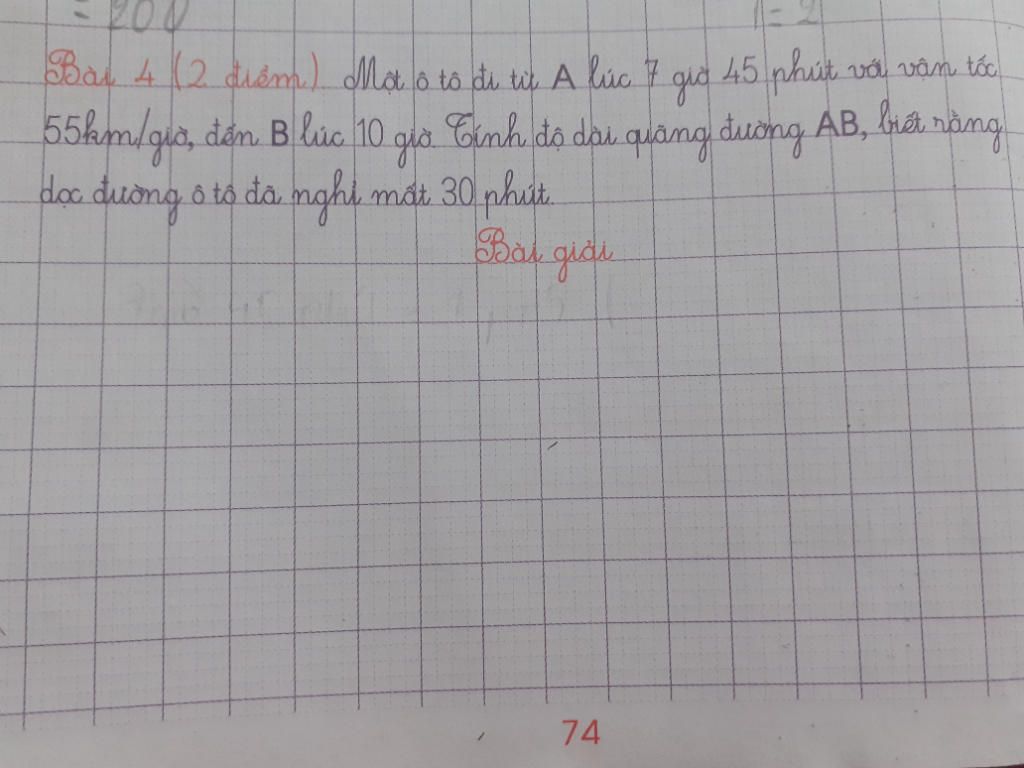 = 200
1 = 2
Bài 4 (2 điểm). Một ô tô đi từ A lúc 7 giờ 45 phút với vận tốc
55km/giờ, đến B lúc 10 giờ. Tính độ dài quãng đường AB, biết rằng
dọc đường ô tô đã nghỉ mất 30 phút.
Bài giải
74